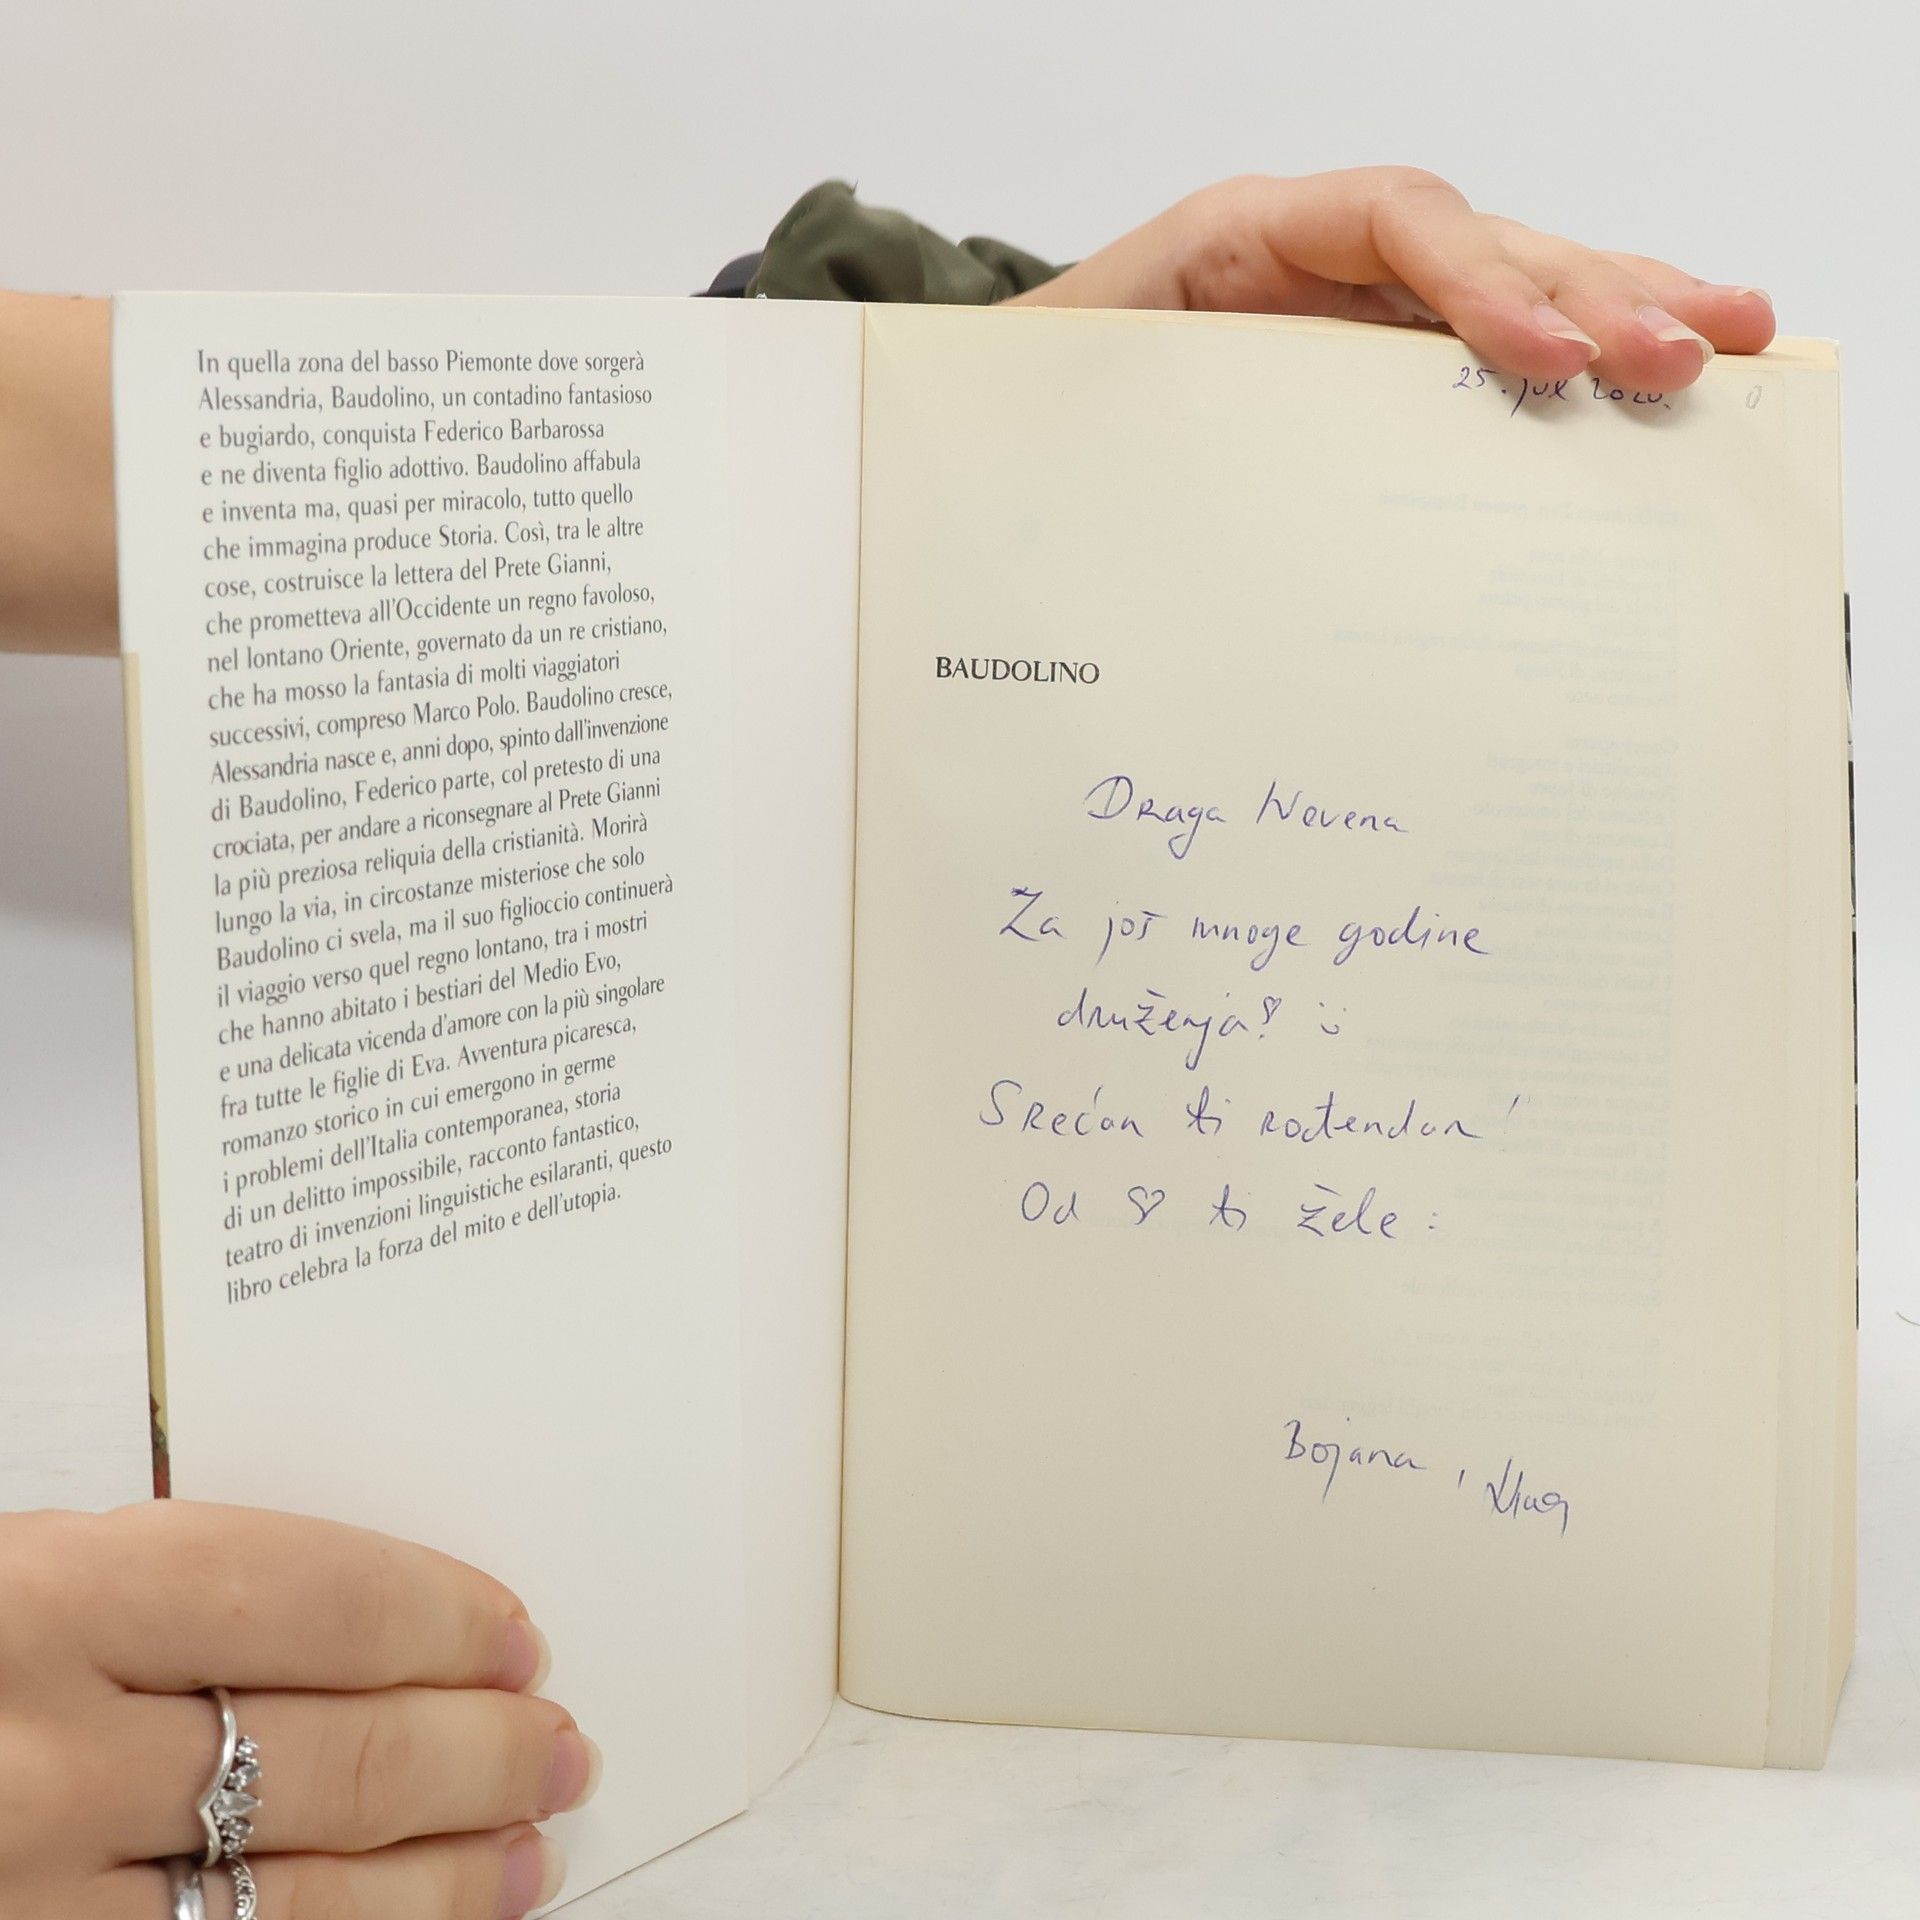 In quella zona del basso Piemonte dove sorgerà
Alessandria, Baudolino, un contadino fantasioso
e bugiardo, conquista Federico Barbarossa
e ne diventa figlio adottivo. Baudolino affabula
e inventa ma, quasi per miracolo, tutto quello
che immagina produce Storia. Così, tra le altre
cose, costruisce la lettera del Prete Gianni,
che prometteva all'Occidente un regno favoloso,
nel lontano Oriente, governato da un re cristiano,
che ha mosso la fantasia di molti viaggiatori
successivi, compreso Marco Polo. Baudolino cresce,
Alessandria nasce e, anni dopo, spinto dall'invenzione
di Baudolino, Federico parte, col pretesto di una
crociata, per andare a riconsegnare al Prete Gianni
la più preziosa reliquia della cristianità. Morirà
lungo la via, in circostanze misteriose che solo
Baudolino ci svela, ma il suo figlioccio continuerà
il viaggio verso quel regno lontano, tra i mostri
che hanno abitato i bestiari del Medio Evo,
e una delicata vicenda d'amore con la più singolare
fra tutte le figlie di Eva. Avventura picaresca,
romanzo storico in cui emergono in germe
i problemi dell'Italia contemporanea, storia
di un delitto impossibile, racconto fantastico,
teatro di invenzioni linguistiche esilaranti, questo
libro celebra la forza del mito e dell'utopia.
25. jul
BAUDOLINO
Draga Nevena
Za još mnoge godine
druženja! :)
Srećan ti rođendan!
Od ♡ ti žele:
Bojana,